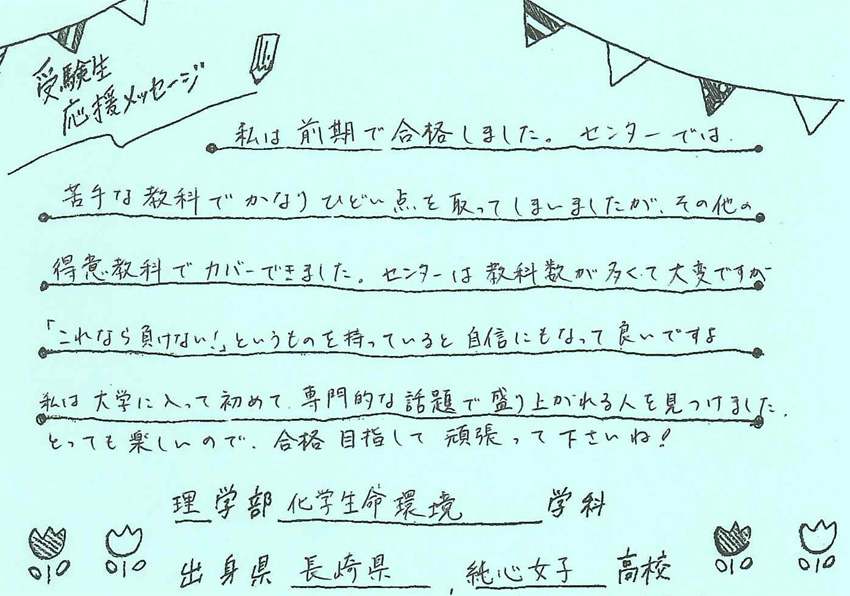 受験生
応援メッセージ
私は前期で合格しました。センターでは、
苦手な教科でかなりひどい点を取ってしまいましたが、その他の
得意教科でカバーできました。センターは教科数が多くて大変ですが
「これなら負けない!」というものを持っていると自信にもなって良いですよ
私は大学に入って初めて、専門的な話題で盛り上がれる人を見つけました。
とっても楽しいので、合格目指して頑張って下さいね!
理学部 化学生命環境 学科
出身県 長崎県、純心女子 高校